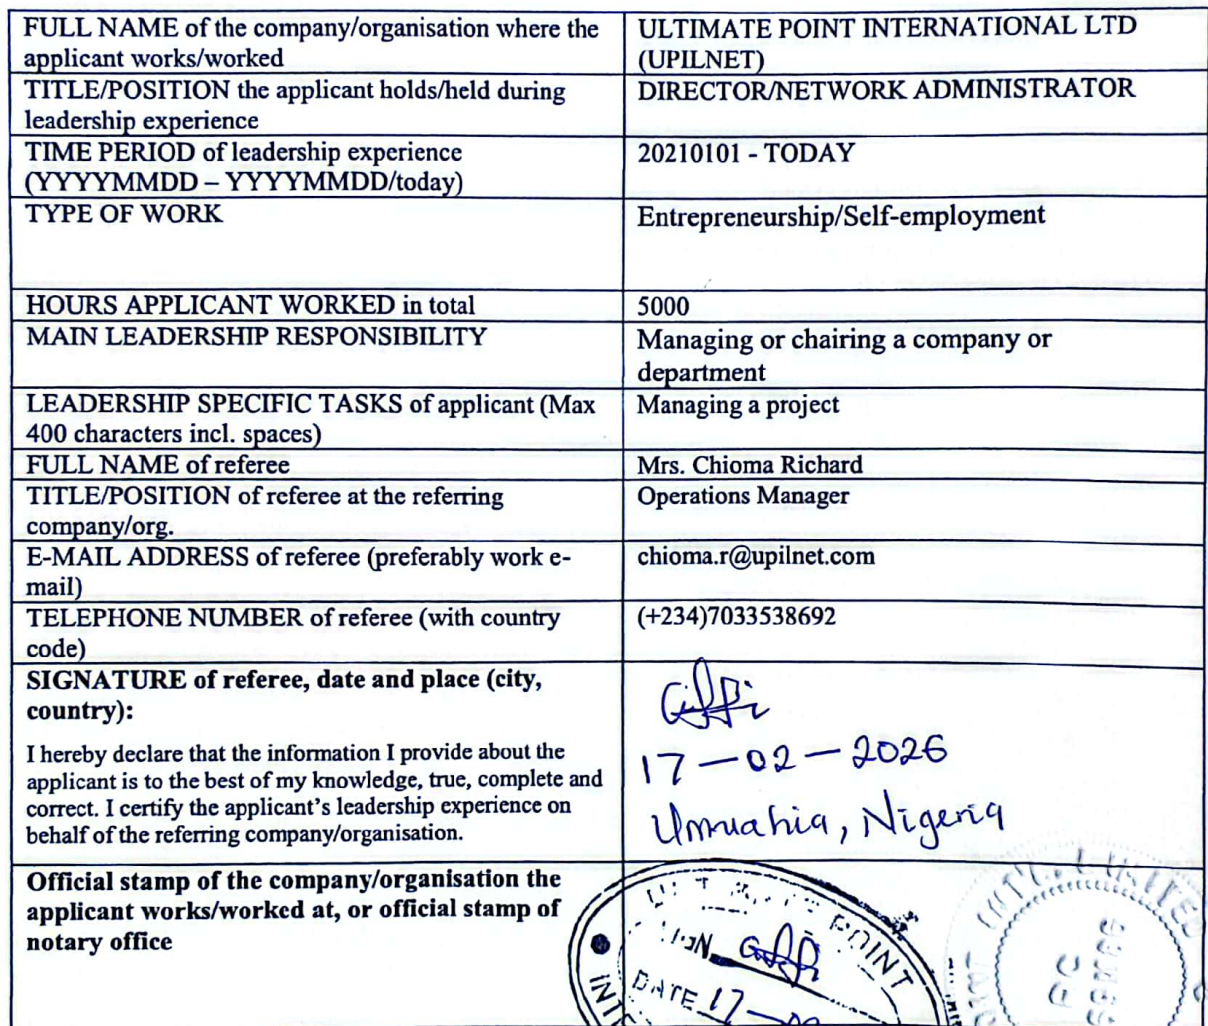 FULL NAME of the company/organisation where the
applicant works/worked
ULTIMATE POINT INTERNATIONAL LTD
(UPILNET)
TITLE/POSITION the applicant holds/held during
leadership experience
DIRECTOR/NETWORK ADMINISTRATOR
TIME PERIOD of leadership experience
(YYYYMMDD – YYYYMMDD/today)
20210101 - TODAY
TYPE OF WORK
Entrepreneurship/Self-employment
HOURS APPLICANT WORKED in total
5000
MAIN LEADERSHIP RESPONSIBILITY
Managing or chairing a company or
department
LEADERSHIP SPECIFIC TASKS of applicant (Max
400 characters incl. spaces)
Managing a project
FULL NAME of referee
Mrs. Chioma Richard
TITLE/POSITION of referee at the referring
company/org.
Operations Manager
E-MAIL ADDRESS of referee (preferably work e-
mail)
chioma.r@upilnet.com
TELEPHONE NUMBER of referee (with country
code)
(+234)7033538692
SIGNATURE of referee, date and place (city,
country):
I hereby declare that the information I provide about the
applicant is to the best of my knowledge, true, complete and
correct. I certify the applicant's leadership experience on
behalf of the referring company/organisation.
17-02-2026
Umuahia, Nigeria
Official stamp of the company/organisation the
applicant works/worked at, or official stamp of
notary office
POINT
DATE 17
INT'L LIMITED
RC